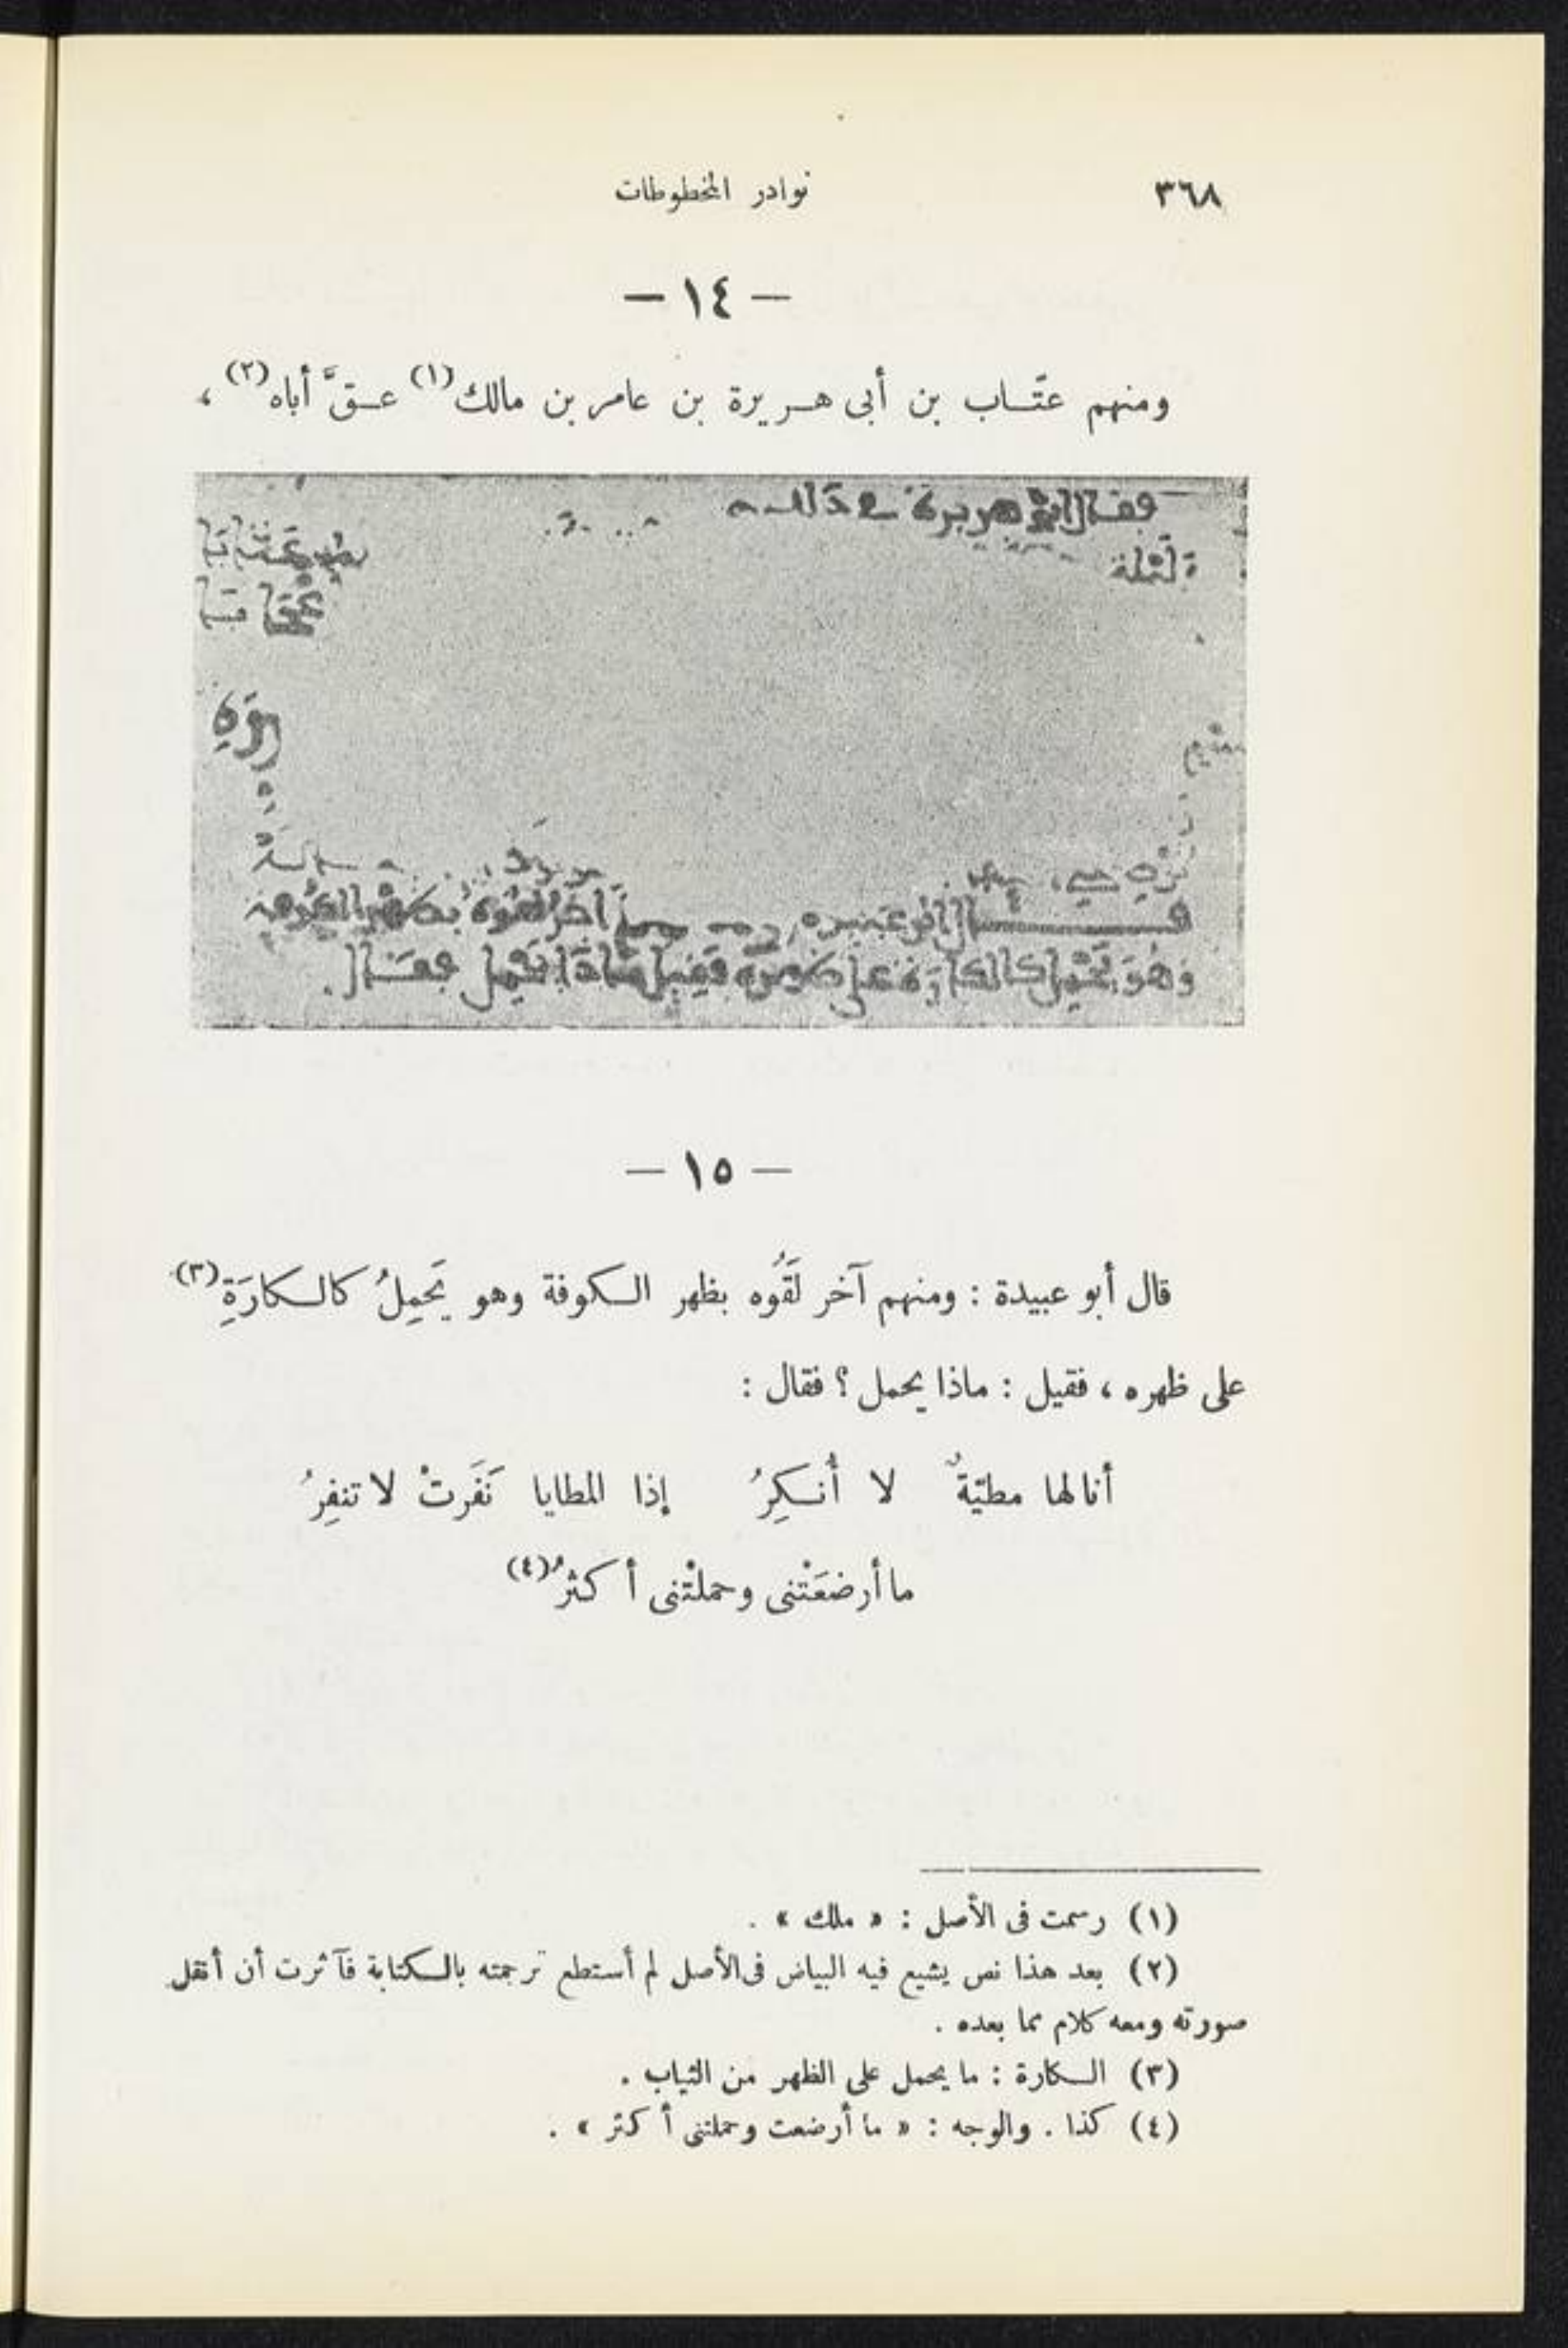 ٣٦٨
نوادر المخطوطات
— ١٤ —
ومنهم عتّاب بن أبى هريرة بن عامر بن مالك(١) عقَّ أباه(٢) ،
فقال ابو هريرة في ذلك
قال ابو عبيده آخر لقوه بظهر الكوفة
وهو يحمل كالكارة على ظهره فقيل ماذا يحمل فقال
— ١٥ —
قال أبو عبيدة : ومنهم آخر لَقُوه بظهر الكوفة وهو يَحمِلُ كالكارَةِ(٣)
على ظهره ، فقيل : ماذا يحمل ؟ فقال :
أنا لها مطيّةٌ لا أُنكِرُ إذا المطايا نَفَرتْ لا تنفِرُ
ما أرضعَتْنى وحملتْنى أكثرُ(٤)
(١) رسمت فى الأصل : « ملك » .
(٢) بعد هذا نص يشيع فيه البياض فى الأصل لم أستطع ترجمته بالكتابة فآثرت أن أنقل
صورته ومعه كلام مما بعده .
(٣) الكارة : ما يحمل على الظهر من الثياب .
(٤) كذا . والوجه : « ما أرضعت وحملتنى أكثر » .